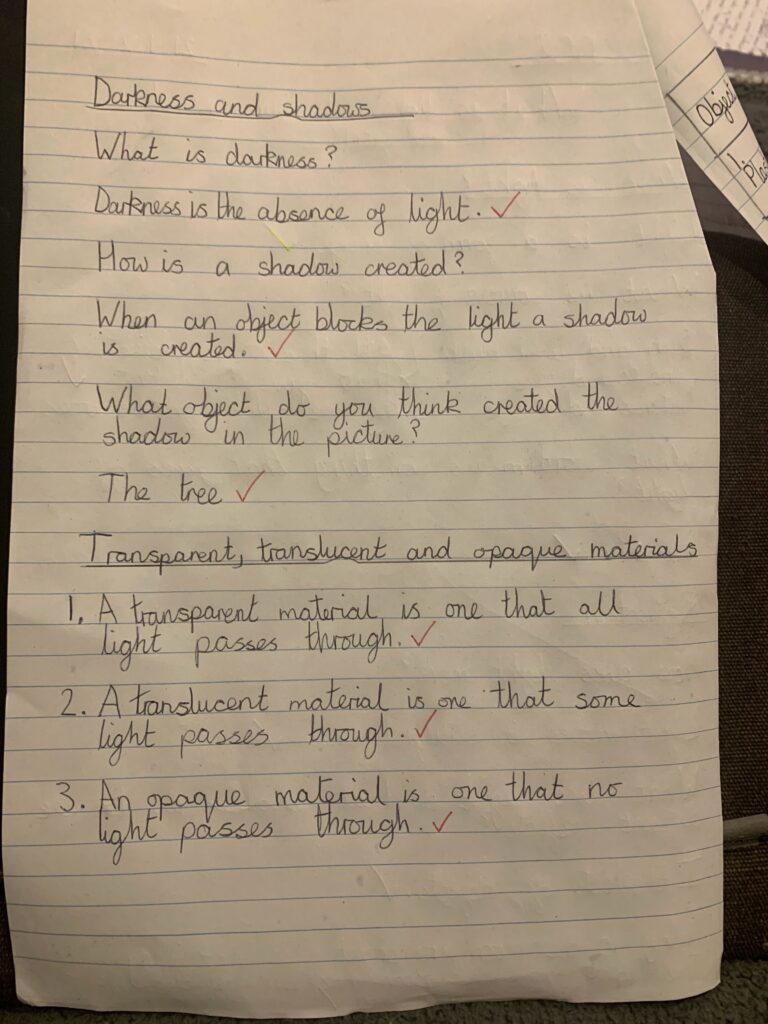 Darkness and shadows
What is darkness?
Darkness is the absence of light.
How is a shadow created?
When an object blocks the light a shadow
is created.
What object do you think created the
shadow in the picture?
The tree
Transparent, translucent and opaque materials
1. A transparent material is one that all
light passes through.
2. A translucent material is one that some
light passes through.
3. An opaque material is one that no
light passes through.